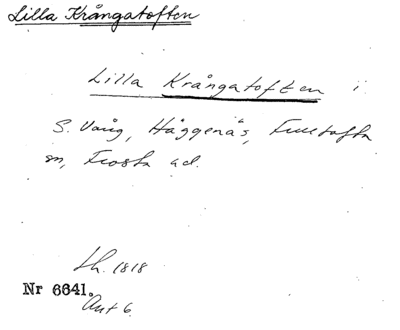 Lilla Krångatoften
Lilla Krångatoften i
S. Vång, Häggenäs, Fulltofta
sn, Frosta hd.
Lh. 1818
Nr 6641.
Akt 6